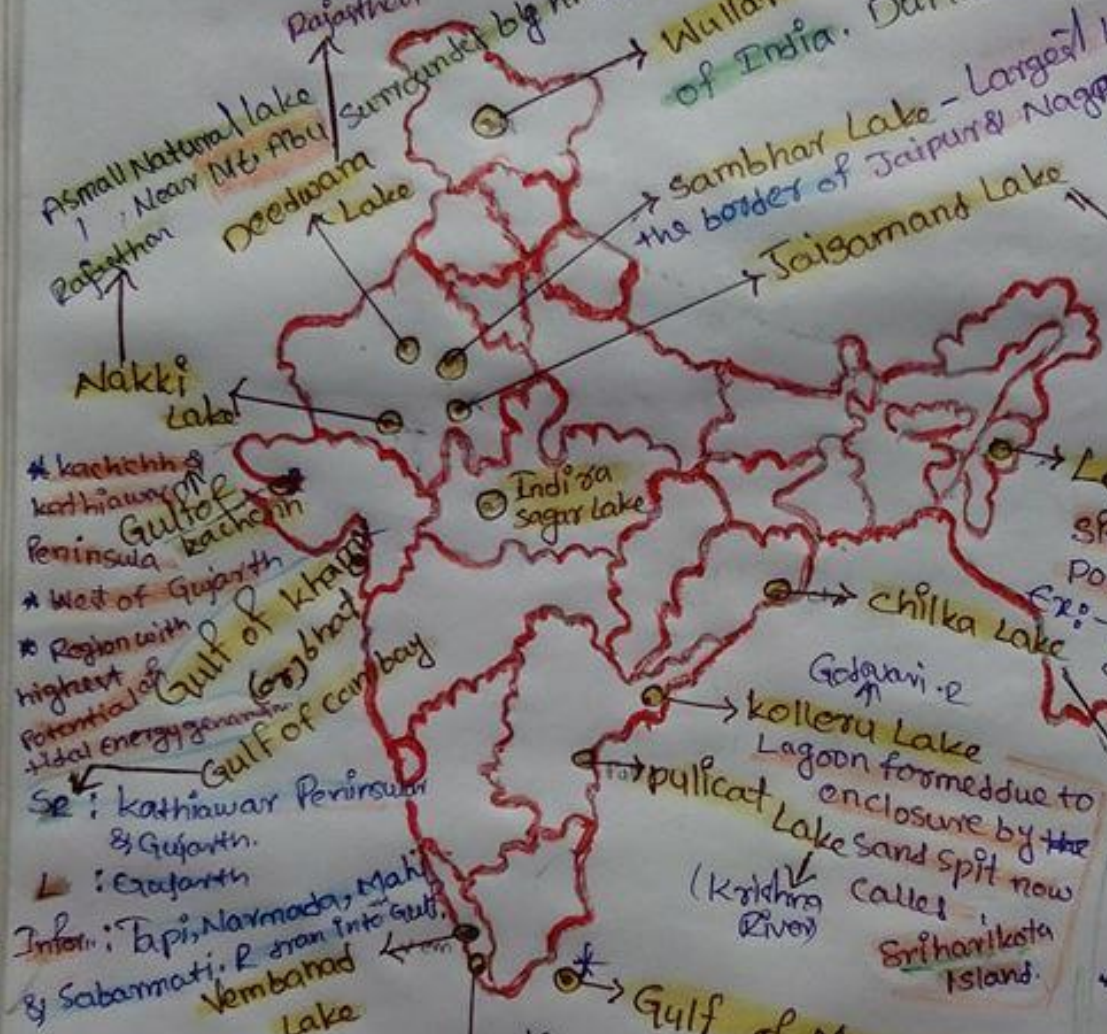 Rajasthan
Surrounded by
Wullar
of India.
A small Natural lake
Near Mt. Abu
Rajasthan
Deedwana
Lake
Sambhar Lake - Largest
the border of Jaipur &
Jaisamand Lake
Nakki
Lake
* kachichh &
kathiawar
Peninsula
* West of Gujarth
* Region with
highest
Potential of
tidal energy
Gulf of
kachchh
Gulf of Khap
(or) bhat
Gulf of Cambay
Indira
sagar Lake
chilka Lake
Ex:-
Godavari . R
kolleru Lake
Lagoon formed due to
enclosure by the
Sand Spit now
Calles
Sriharikota
Island.
pulicat
Lake
(Krishna
River)
SR : kathiawar Peninsular
& Gujarth.
L : Gujarth
Infor.. : Tapi, Narmada, Mahi
& Sabarmati. R dran into Gulf.
Vembanad
Lake
Gulf of